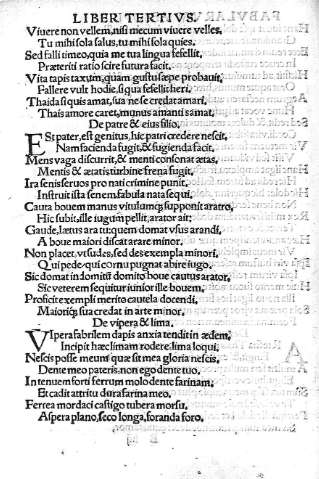 LIBER TERTIVS.
Viuere non vellem, nisi mecum viuere velles,
Tu mihi sola salus, tu mihi sola quies.
Sed falli timeo, quia me tua lingua fefellit,
Præteriti ratio scire futura facit.
Vita tapis taxum, quàm gustu sæpe probauit,
Fallere vult hodie, siqua fefellit heri.
Thaida siquis amat, sua ne se credat amari,
Thais amore caret, munus amanti s amat.
De patre & eius filio.
Est pater, est genitus, hic patri credere nescit,
Nam facienda fugit, & fugienda facit,
Mens vaga discurrit, & menti consonat ætas,
Mentis & ætatis turbine frena fugit,
Ira senis seruos pro nati crimine punit,
Instruit ista senem, fabula nata sequi.
Cauta bouem manus vitulumq; supponit aratro,
Hic subit, ille iugum pellit, arator ait:
Gaude, lætus ara tu: quem domat vsus arandi,
A boue maiori discat arare minor.
Non placet, vt sudes, sed des exempla minori,
Qui pede qui cornu pugnat abire iugo.
Sic domat indomitū domito boue cautus arator,
Sic veterem sequitur iunior ille bouem,
Proficit exempli merito cautela docendi,
Maioriq; sua credat in arte minor.
De vipera & lima.
Vipera fabrilem dapis anxia tendit in ædem,
Incipit hæc limam rodere, lima loqui,
Nescis posse meum quæ sit mea gloria nescis,
Dente meo pateris, non ego dente tuo,
In tenuem forti ferrum molo dente farinam,
Et cadit attritu dura farina meo.
Ferrea mordaci castigo tubera morsu,
Aspera plano, seco longa, foranda foro.